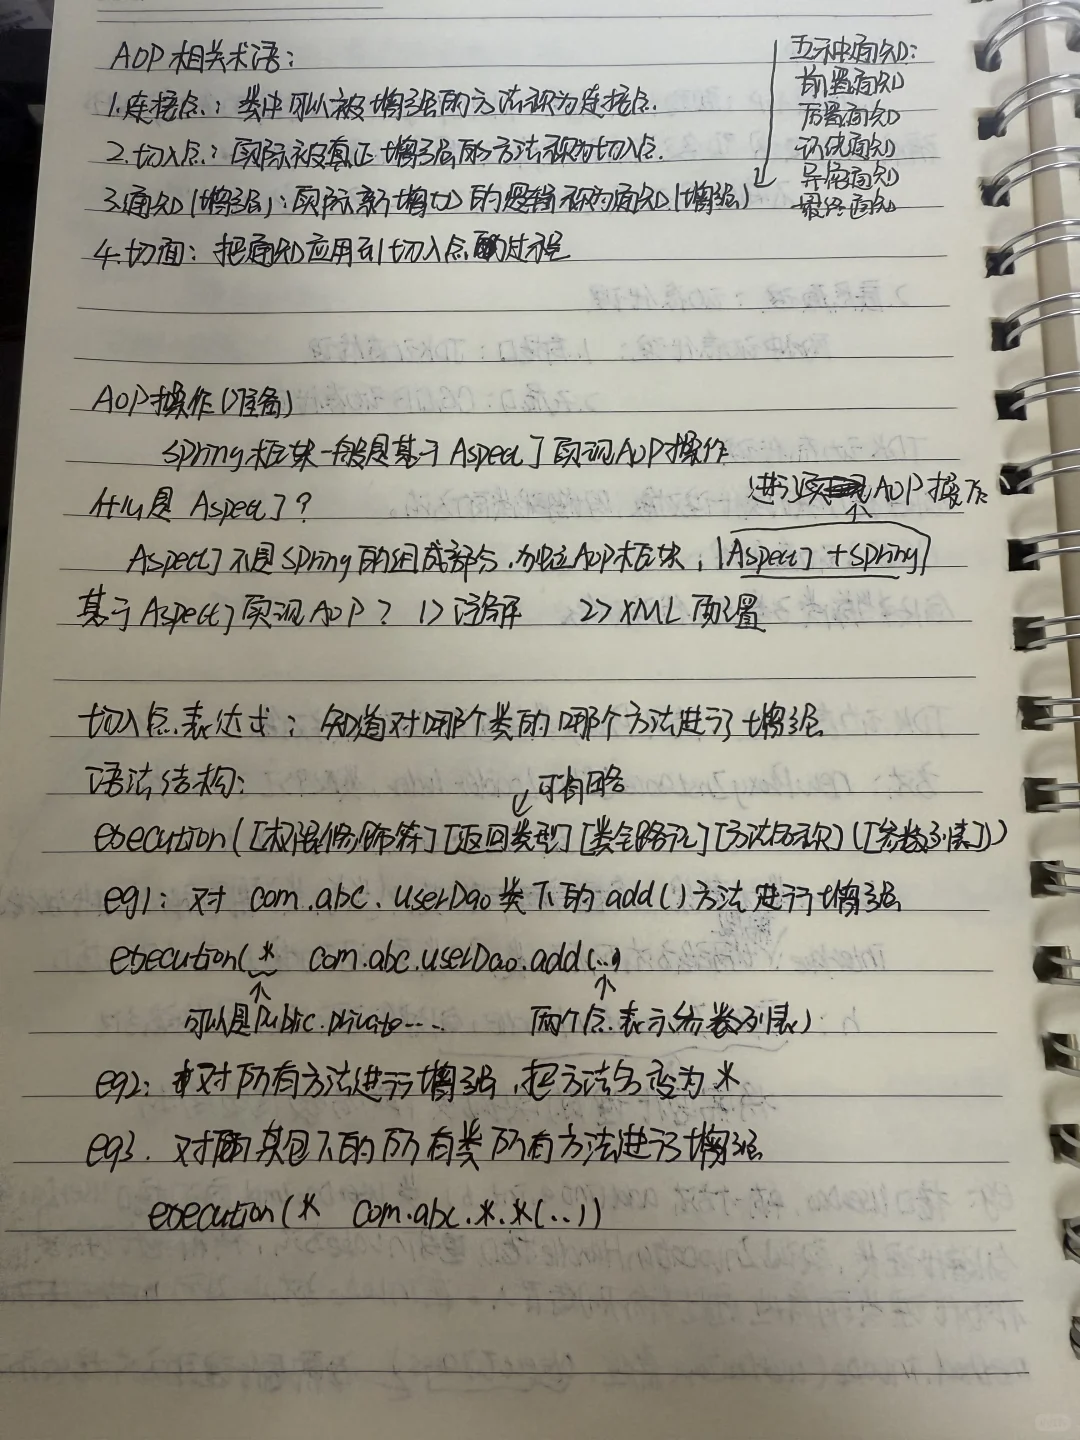 AOP相关术语：
1.连接点：类中可以被增强的方法称为连接点.
2.切入点：实际被真正增强的方法称为切入点.
3.通知(增强)：实际新增加的逻辑称为通知(增强)
4.切面：把通知应用到切入点的过程
五种通知：
前置通知
后置通知
环绕通知
异常通知
最终通知
AOP操作(准备)
Spring框架一般是基于AspectJ实现AOP操作
什么是 AspectJ？
进行AOP操作
AspectJ不是Spring的组成部分，独立AOP框架，(AspectJ + Spring)
基于AspectJ实现AOP？ 1> 注解 2> XML配置
切入点表达式：知道对哪个类的哪个方法进行增强
语法结构：
可省略
execution([权限修饰符][返回类型][类全路径][方法名称]([参数列表]))
eg1：对 com.abc.UserDao类下的add()方法进行增强
execution(* com.abc.userDao.add(..)
可以是Public.private……
两个点表示参数列表)
eg2：对所有方法进行增强，把方法名变为 *
eg3. 对某包下的所有类所有方法进行增强
execution(* com.abc.*.*(..))